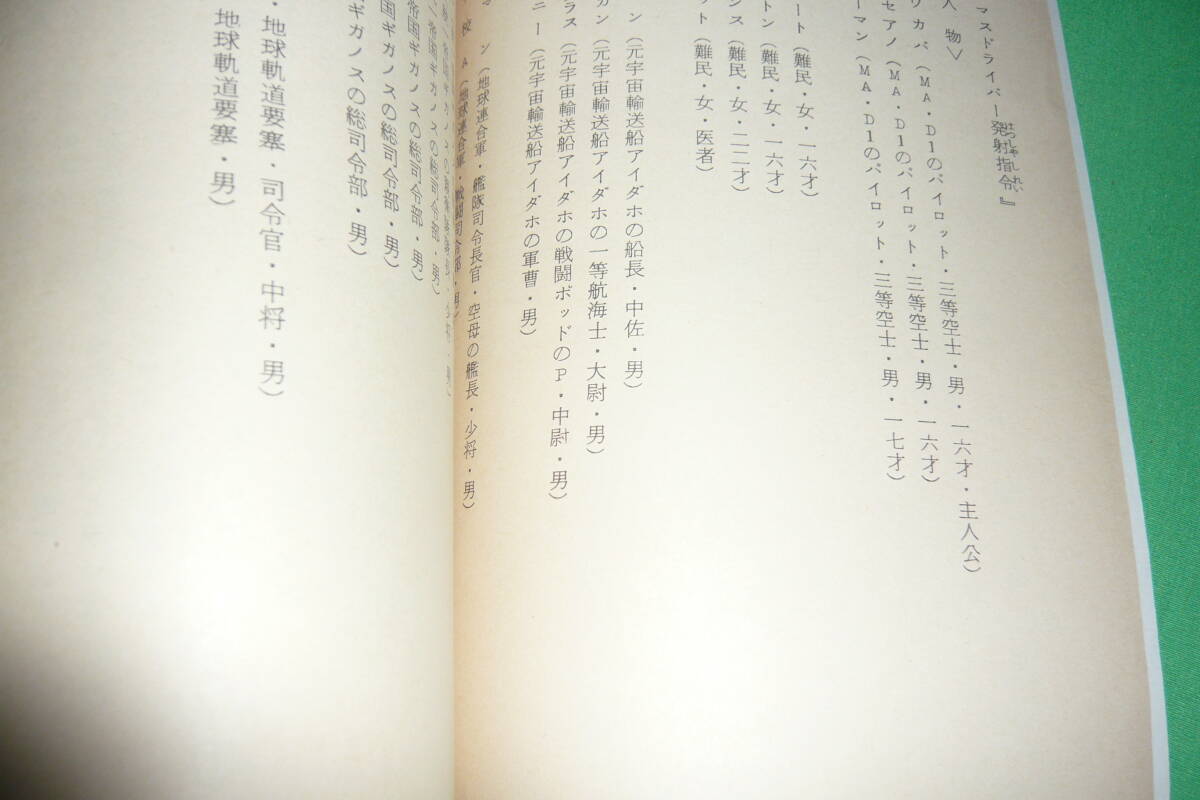 マスドライバー発射指令』
はっしゃしれい
人物＞
ワカバ（MA・D1のパイロット・三等空士・男・一六才・主人公）
セアノ（MA・D1のパイロット・三等空士・男・一六才）
ーマン（MA・D1のパイロット・三等空士・男・一七才）
ート（難民・女・一六才）
トン（難民・女・一六才）
ンス（難民・女・二二才）
ット（難民・女・医者）
ン（元宇宙輸送船アイダホの船長・中佐・男）
カン（元宇宙輸送船アイダホの一等航海士・大尉・男）
ラス（元宇宙輸送船アイダホの戦闘ポッドのP・中尉・男）
ニー（元宇宙輸送船アイダホの軍曹・男）
ン（地球連合軍・艦隊司令長官・空母の艦長・少将・男）
校A（地球連合軍・戦闘司令部・男）
帝国ギガノスの総司令部・男）
帝国ギガノスの総司令部・男）
国ギガノスの総司令部・男）
ギガノスの総司令部・男）
・地球軌道要塞・司令官・中将・男）
地球軌道要塞・男）